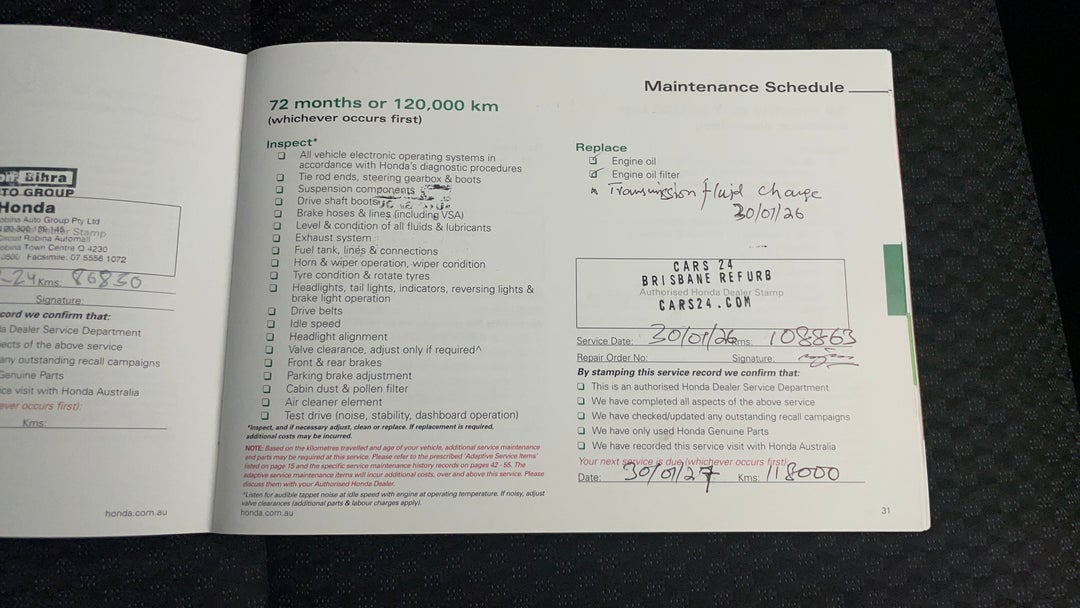 Bihra
TO GROUP
Honda
obina Auto Group Pty Ltd
Dealer Stamp
Circuit Robina Automall
obina Town Centre Q 4230
Facsimile: 07 5556 1072
24 Kms: 86830
Signature:
cord we confirm that:
a Dealer Service Department
ects of the above service
any outstanding recall campaigns
Genuine Parts
ice visit with Honda Australia
ever occurs first):
Kms:
honda.com.au
72 months or 120,000 km
(whichever occurs first)
Inspect*
❑ All vehicle electronic operating systems in
accordance with Honda's diagnostic procedures
❑ Tie rod ends, steering gearbox & boots
❑ Suspension components
❑ Drive shaft boots
❑ Brake hoses & lines (including VSA)
❑ Level & condition of all fluids & lubricants
❑ Exhaust system
❑ Fuel tank, lines & connections
❑ Horn & wiper operation, wiper condition
❑ Tyre condition & rotate tyres
❑ Headlights, tail lights, indicators, reversing lights &
brake light operation
❑ Drive belts
❑ Idle speed
❑ Headlight alignment
❑ Valve clearance, adjust only if required^
❑ Front & rear brakes
❑ Parking brake adjustment
❑ Cabin dust & pollen filter
❑ Air cleaner element
❑ Test drive (noise, stability, dashboard operation)
*Inspect, and if necessary adjust, clean or replace. If replacement is required,
additional costs may be incurred.
NOTE: Based on the kilometres travelled and age of your vehicle, additional service maintenance
and parts may be required at this service. Please refer to the prescribed 'Adaptive Service Items'
listed on page 15 and the specific service maintenance history records on pages 42 - 55. The
adaptive service maintenance items will incur additional costs, over and above this service. Please
discuss them with your Authorised Honda Dealer.
^Listen for audible tappet noise at idle speed with engine at operating temperature. If noisy, adjust
valve clearances (additional parts & labour charges apply).
honda.com.au
Maintenance Schedule
Replace
Engine oil
Engine oil filter
Transmission fluid change
30/01/26
CARS 24
BRISBANE REFURB
Authorised Honda Dealer Stamp
CARS24.COM
Service Date: 30/01/26 Kms: 108863
Repair Order No: Signature:
By stamping this service record we confirm that:
❑ This is an authorised Honda Dealer Service Department
❑ We have completed all aspects of the above service
❑ We have checked/updated any outstanding recall campaigns
❑ We have only used Honda Genuine Parts
❑ We have recorded this service visit with Honda Australia
Your next service is due (whichever occurs first):
Date: 30/01/27 Kms: 118000
31